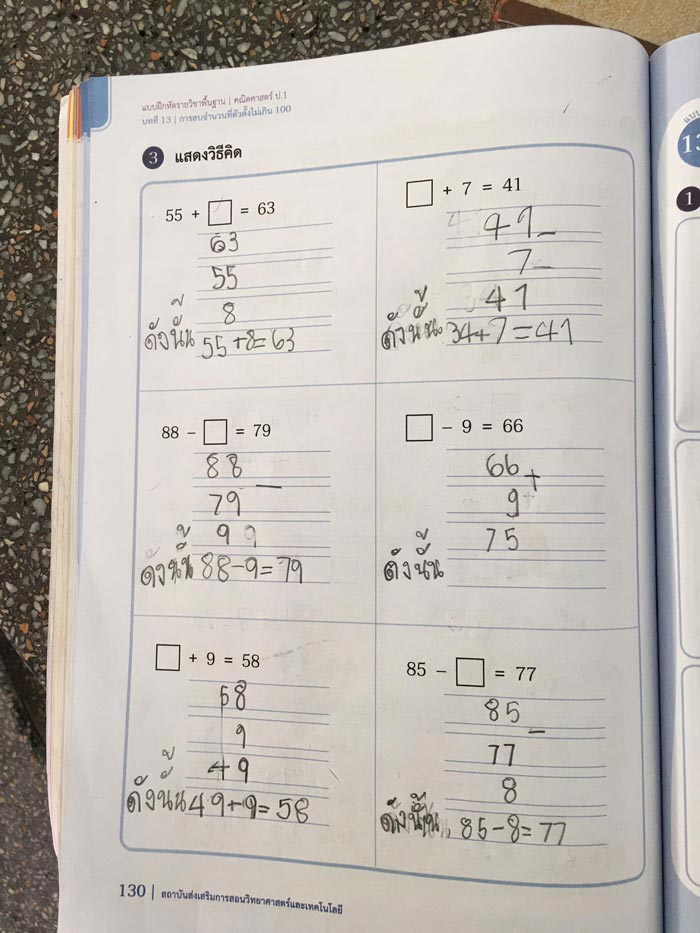 แบบฝึกหัดรายวิชาพื้นฐาน | คณิตศาสตร์ ป.1
บทที่ 13 | การลบจำนวนที่ตัวตั้งไม่เกิน 100
3 แสดงวิธีคิด
55 + □ = 63
63
55
8
ดังนั้น 55+8=63
□ + 7 = 41
41 –
7 –
41
ดังนั้น 34+7=41
88 – □ = 79
88 –
79
9 9
ดังนั้น 88-9=79
□ – 9 = 66
66 +
9
75
ดังนั้น
□ + 9 = 58
58
9
49
ดังนั้น 49+9=58
85 – □ = 77
85 –
77
8
ดังนั้น 85-8=77
130 | สถาบันส่งเสริมการสอนวิทยาศาสตร์และเทคโนโลยี
13
1